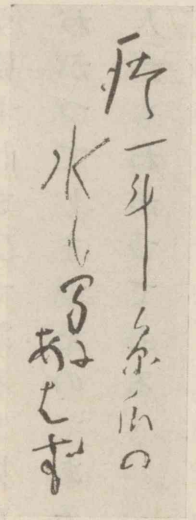 痰一斗糸瓜の
水も間に
あはず